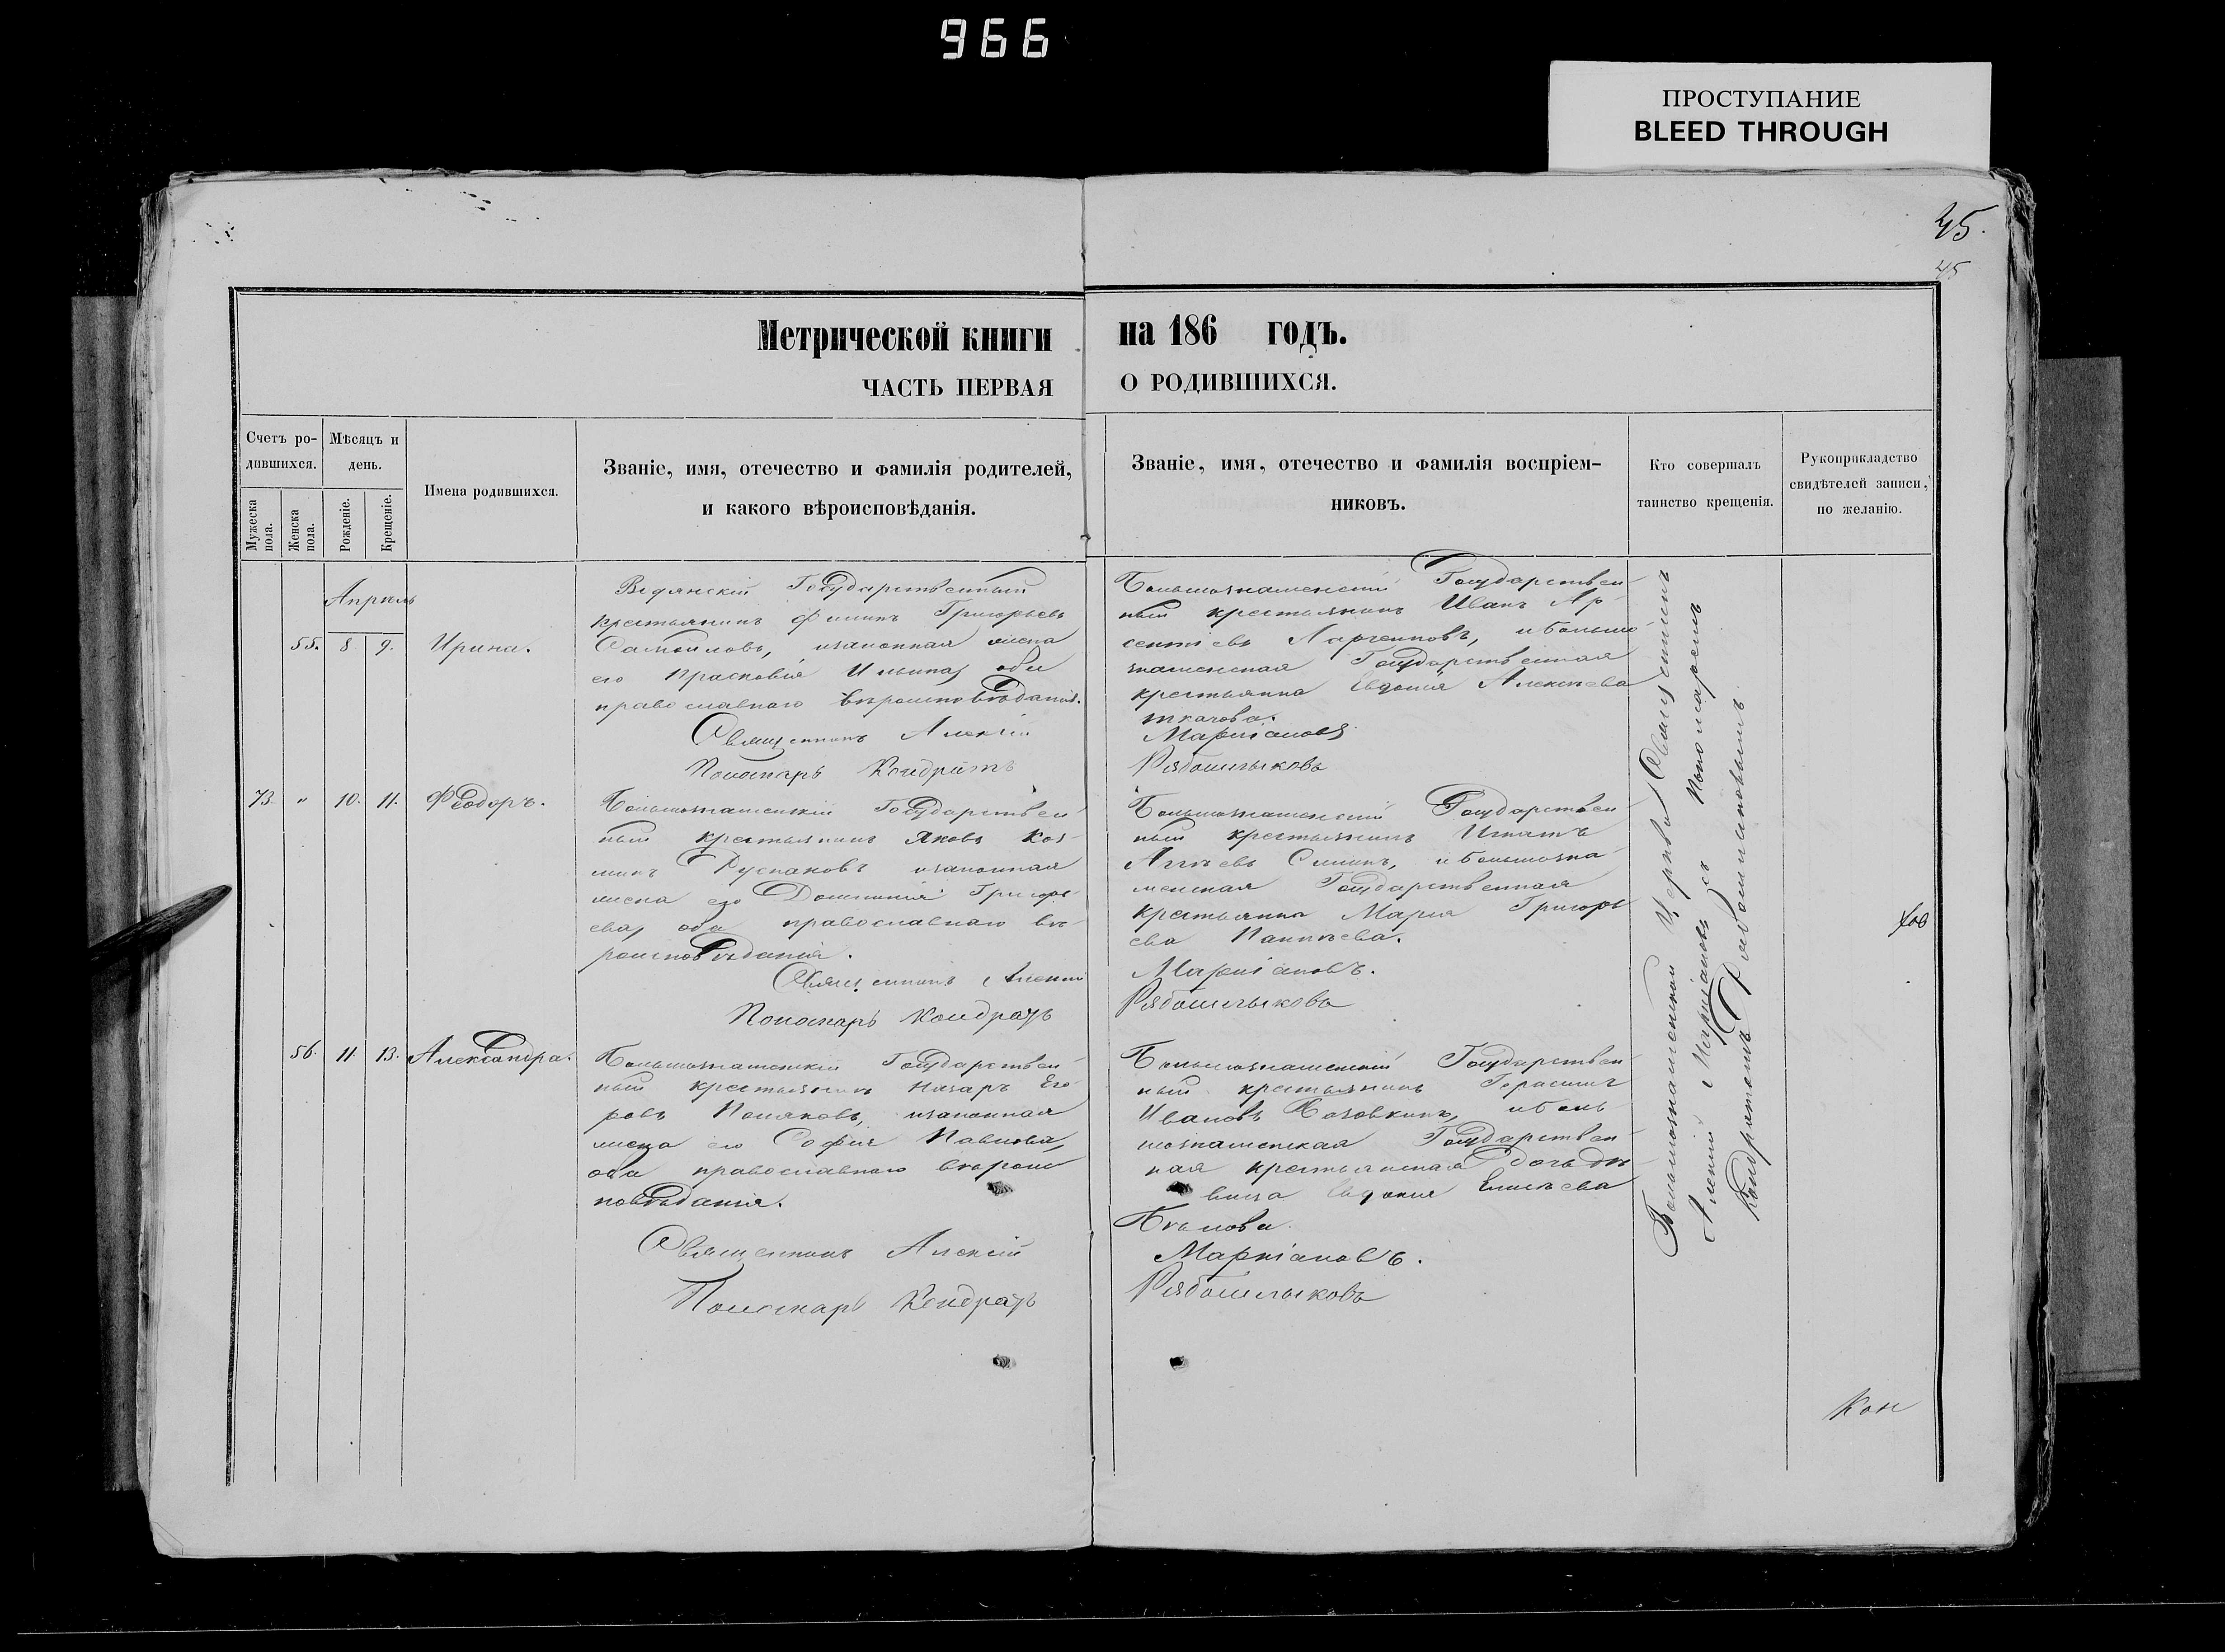 966
ПРОСТУПАНИЕ
BLEED THROUGH
45.
45
Метрической книги на 186 годъ.
ЧАСТЬ ПЕРВАЯ О РОДИВШИХСЯ.
Счетъ ро-
дившихся.
Мужеска
пола.
Женска
пола.
Мѣсяцъ и
день.
Рожденіе.
Крещеніе.
Имена родившихся.
Званіе, имя, отечество и фамилія родителей,
и какого вѣроисповѣданія.
Званіе, имя, отечество и фамилія воспріем-
никовъ.
Кто совершалъ
таинство крещенія.
Рукоприкладство
свидѣтелей записи,
по желанію.
Апрѣль
55. 8 9. Ирина.
Государственный
крестьянинъ Филипъ Григорьевъ
Самойловъ, изаконная жена
его Прасковія Ильина, оба
православнаго вѣроисповѣданія.
Священникъ Алексій
Пономарь Кондратъ
Большознаменскій Государствен-
ный крестьянинъ Иванъ Ар-
сентіевъ иБольшо-
знаменская Государственная
крестьянка Евдокія Алексѣева
ткачова.
Маркіановъ
Рябошлыковъ
73. " 10. 11. Ѳеодоръ.
Большознаменскій Государствен-
ный крестьянинъ Яковъ Коз-
минъ Русаковъ изаконная
жена его Домникія Григорь-
ева, оба православнаго вѣ-
роисповѣданія.
Священникъ Алексій
Пономарь Кондратъ
Большознаменскій Государствен-
ный крестьянинъ Игнатъ
иБольшозна-
менская Государственная
крестьянка Марія Григорь-
ева
Маркіановъ.
Рябошлыковъ
56. 11. 13. Александра.
Большознаменскій Государствен-
ный крестьянинъ Назаръ Его-
ровъ Поляковъ, изаконная
жена его Софія Павлова,
оба православнаго вѣроис-
повѣданія.
Священникъ Алексій
Пономарь Кондратъ
Большознаменскій Государствен-
ный крестьянинъ Герасимъ
Ивановъ иБоль-
шознаменская Государствен-
ная крестьянская дочь дѣ-
вица Евдокія Елисѣева
Бѣлова.
Маркіановъ.
Рябошлыковъ
Большознаменской Церкви Священникъ
Алексій Маркіановъ съ Пономаремъ
Кондратомъ Рябошлыковымъ.
Кон